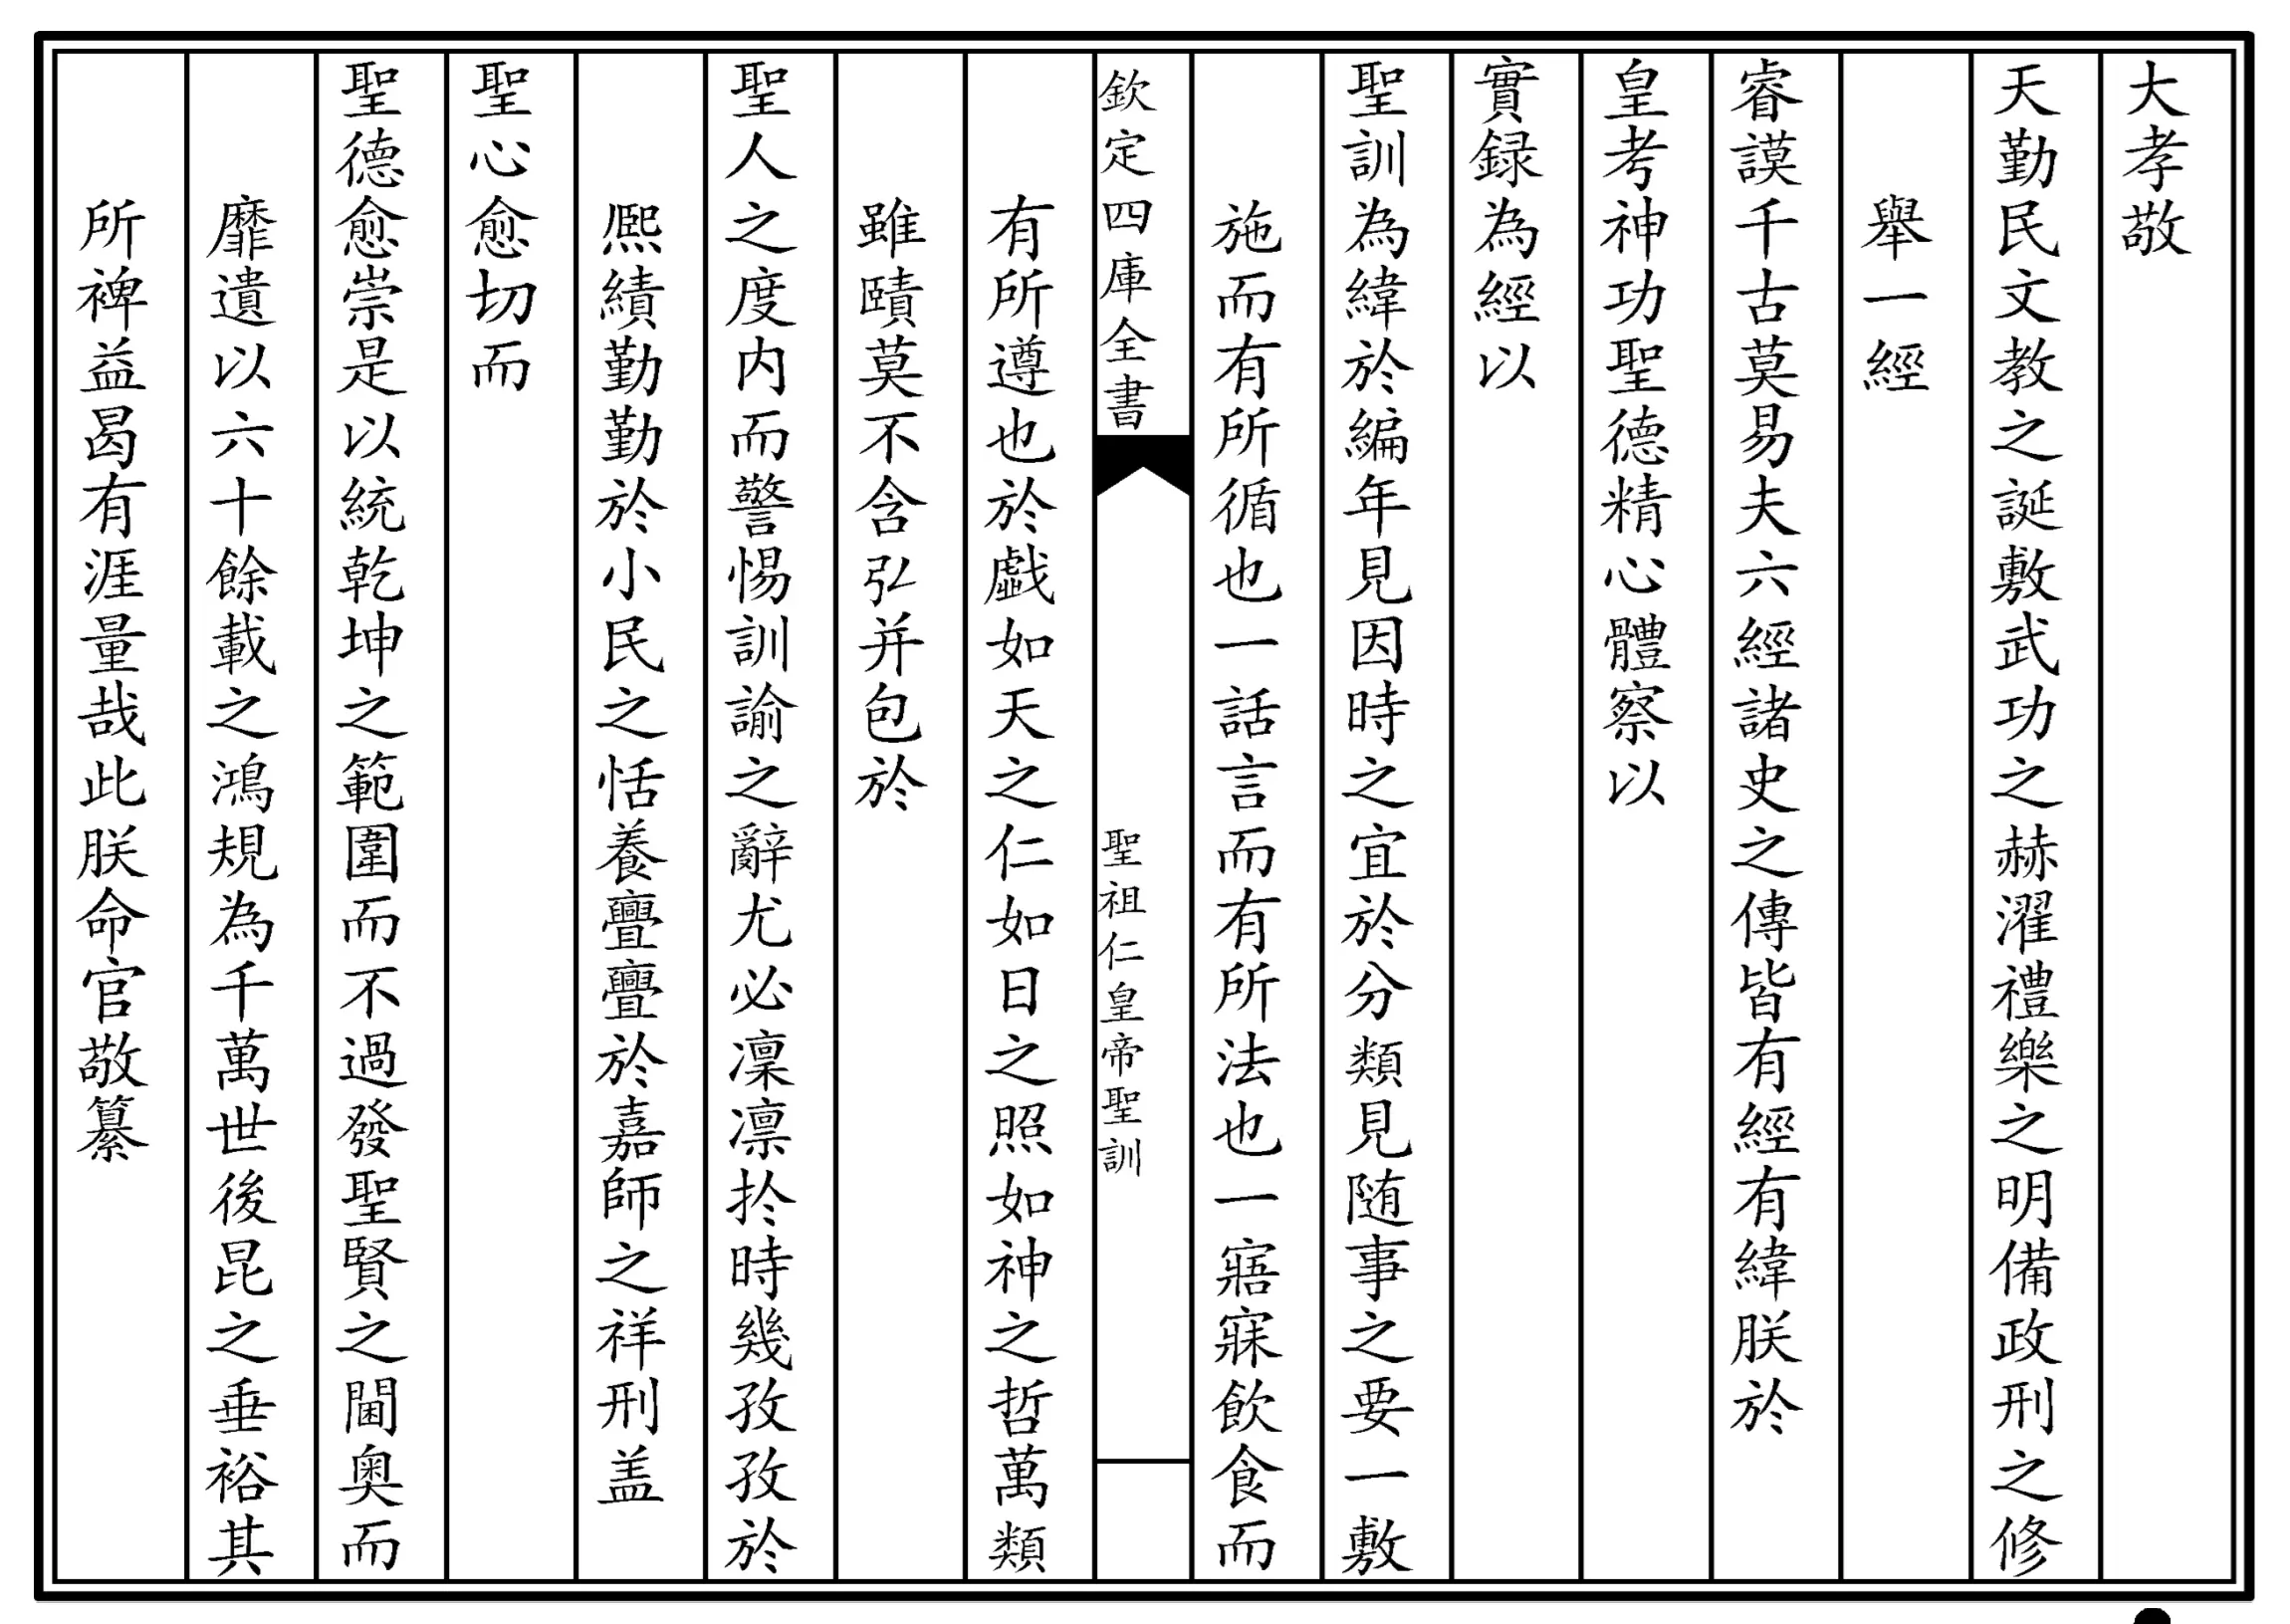 大孝敬
天勤民文教之誕敷武功之赫濯禮樂之明備政刑之修
舉一經
睿謨千古莫易夫六經諸史之傳皆有經有緯朕於
皇考神功聖德精心體察以
實録為經以
聖訓為緯於編年見因時之宜於分類見随事之要一敷
施而有所循也一話言而有所法也一寤寐飲食而
欽定四庫全書
聖祖仁皇帝聖訓
有所遵也於戯如天之仁如日之照如神之哲萬類
雖賾莫不含弘并包於
聖人之度内而警惕訓諭之辭尤必凜凛扵時幾孜孜於
熈績勤勤於小民之恬養亹亹於嘉師之祥刑盖
聖心愈切而
聖德愈崇是以統乾坤之範圍而不過發聖賢之閫奥而
靡遺以六十餘載之鴻規為千萬世後昆之垂裕其
所裨益曷有涯量哉此朕命官敬纂